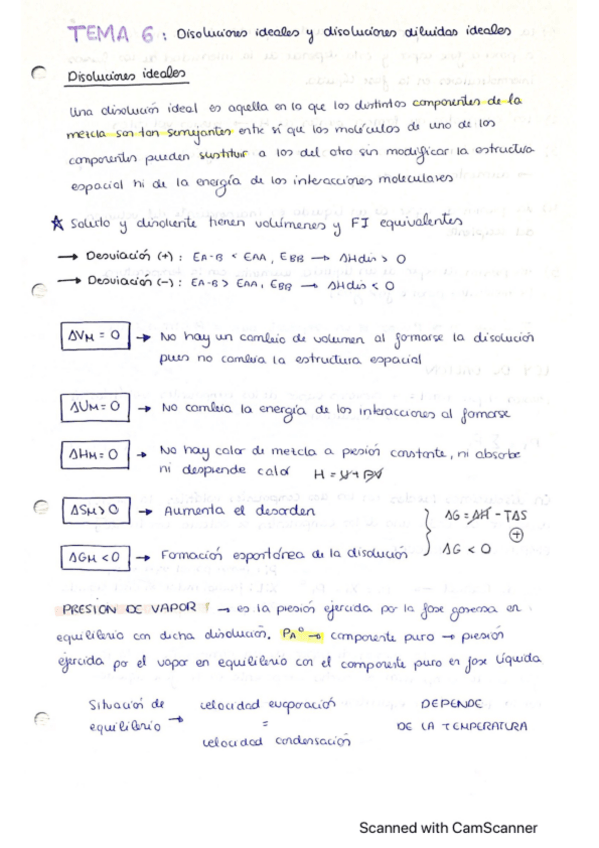 TEMA 6: Disoluciones ideales y disoluciones diluidas ideales
Disoluciones ideales
Una disolución ideal es aquella en la que los distintos componentes de la
mezcla son tan semejantes entre sí que las moléculas de uno de los
componentes pueden sustituir a las del otro sin modificar la estructura
espacial ni de la energía de las interacciones moleculares
★ Soluto y disolvente tienen volúmenes y FI equivalentes
→ Desviación (+): EA-B < EAA, EBB → ΔHdis > 0
→ Desviación (-): EA-B > EAA, EBB → ΔHdis < 0
ΔVM = 0 → No hay un cambio de volumen al formarse la disolución
pues no cambia la estructura espacial
ΔUM = 0 → No cambia la energía de los interacciones al formarse
ΔHM = 0 → No hay calor de mezcla a presión constante, ni absorbe
ni desprende calor H = U + PV
ΔSM > 0 → Aumenta el desorden
ΔG = ΔH - TΔS
(+)
ΔGM < 0 → Formación espontánea de la disolución ΔG < 0
PRESIÓN DE VAPOR → es la presión ejercida por la fase gaseosa en
equilibrio con dicha disolución. PA° → componente puro → presión
ejercida por el vapor en equilibrio con el componente puro en fase líquida
Situación de equilibrio → velocidad evaporación = velocidad condensación
DEPENDE
DE LA TEMPERATURA
Scanned with CamScanner